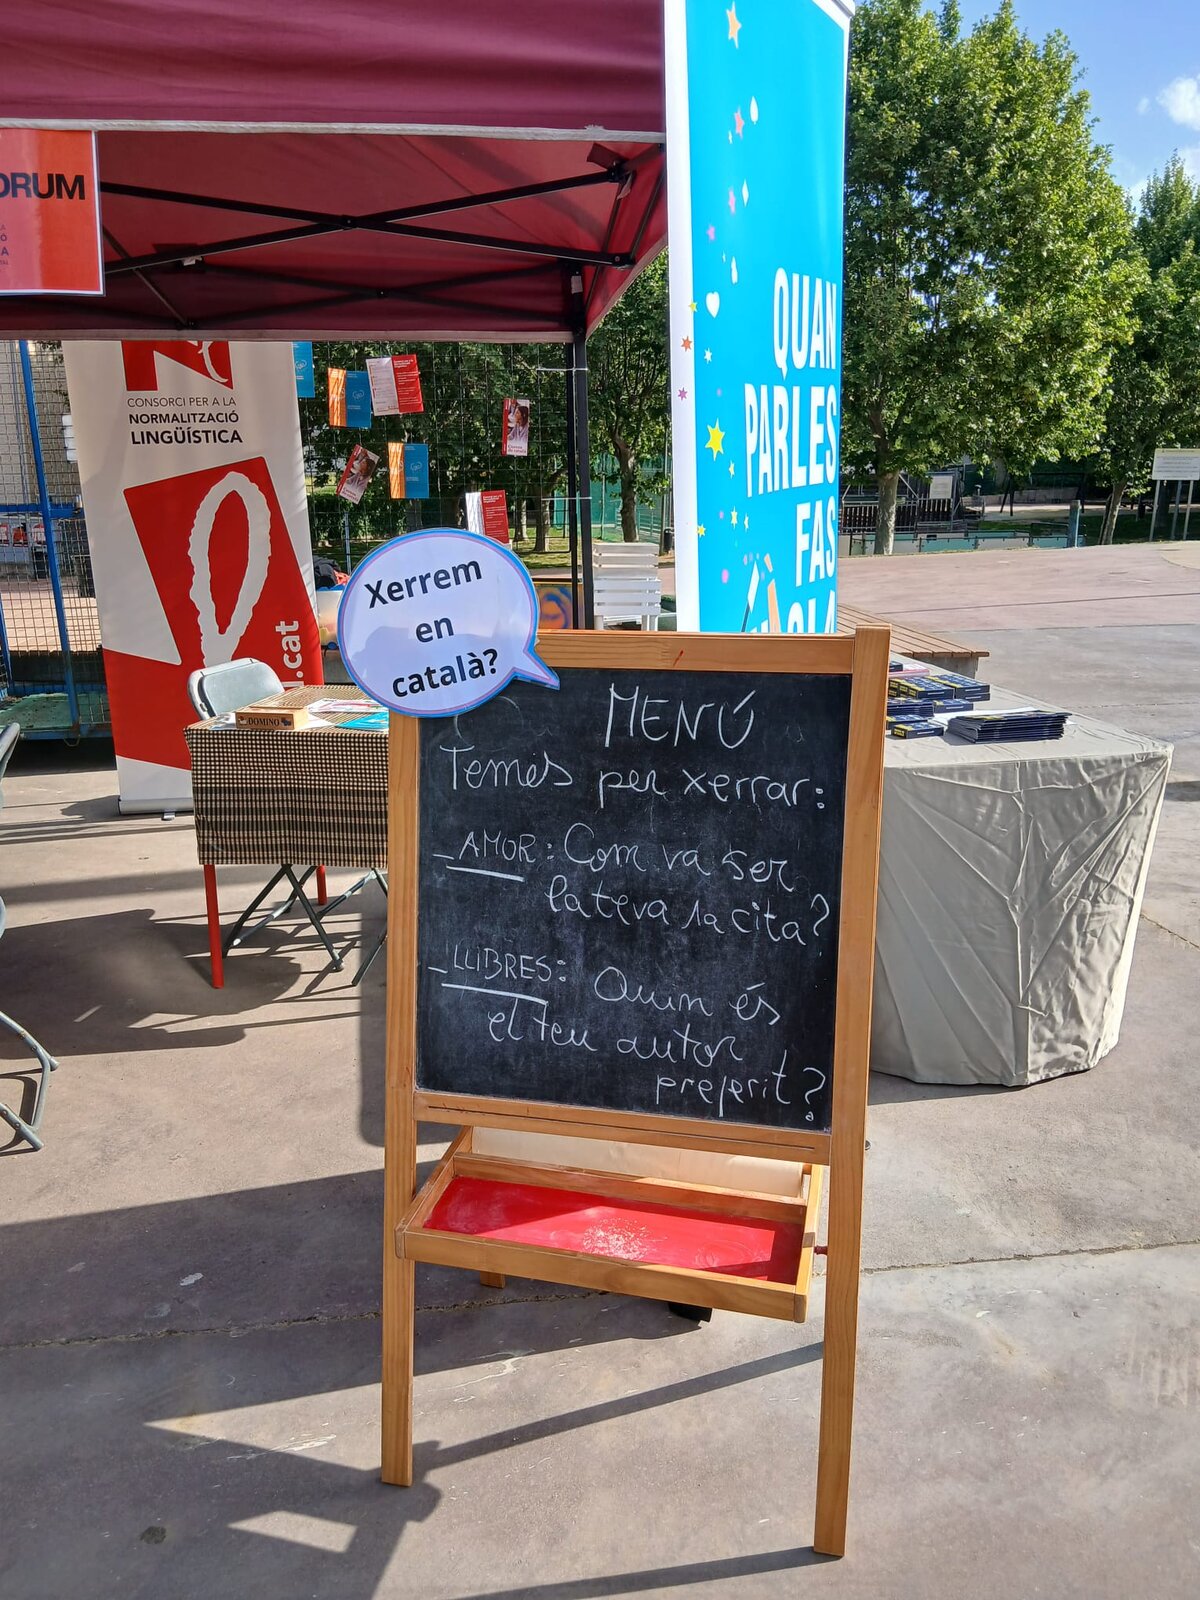 ORUM
CONSORCI PER A LA
NORMALITZACIÓ
LINGÜÍSTICA
.cat
QUAN
PARLES
FAS
Xerrem
en
català?
DOMINO
MENÚ
Temes per xerrar:
- AMOR: Com va ser
la teva 1a cita?
- LLIBRES: Quin és
el teu autor
preferit?